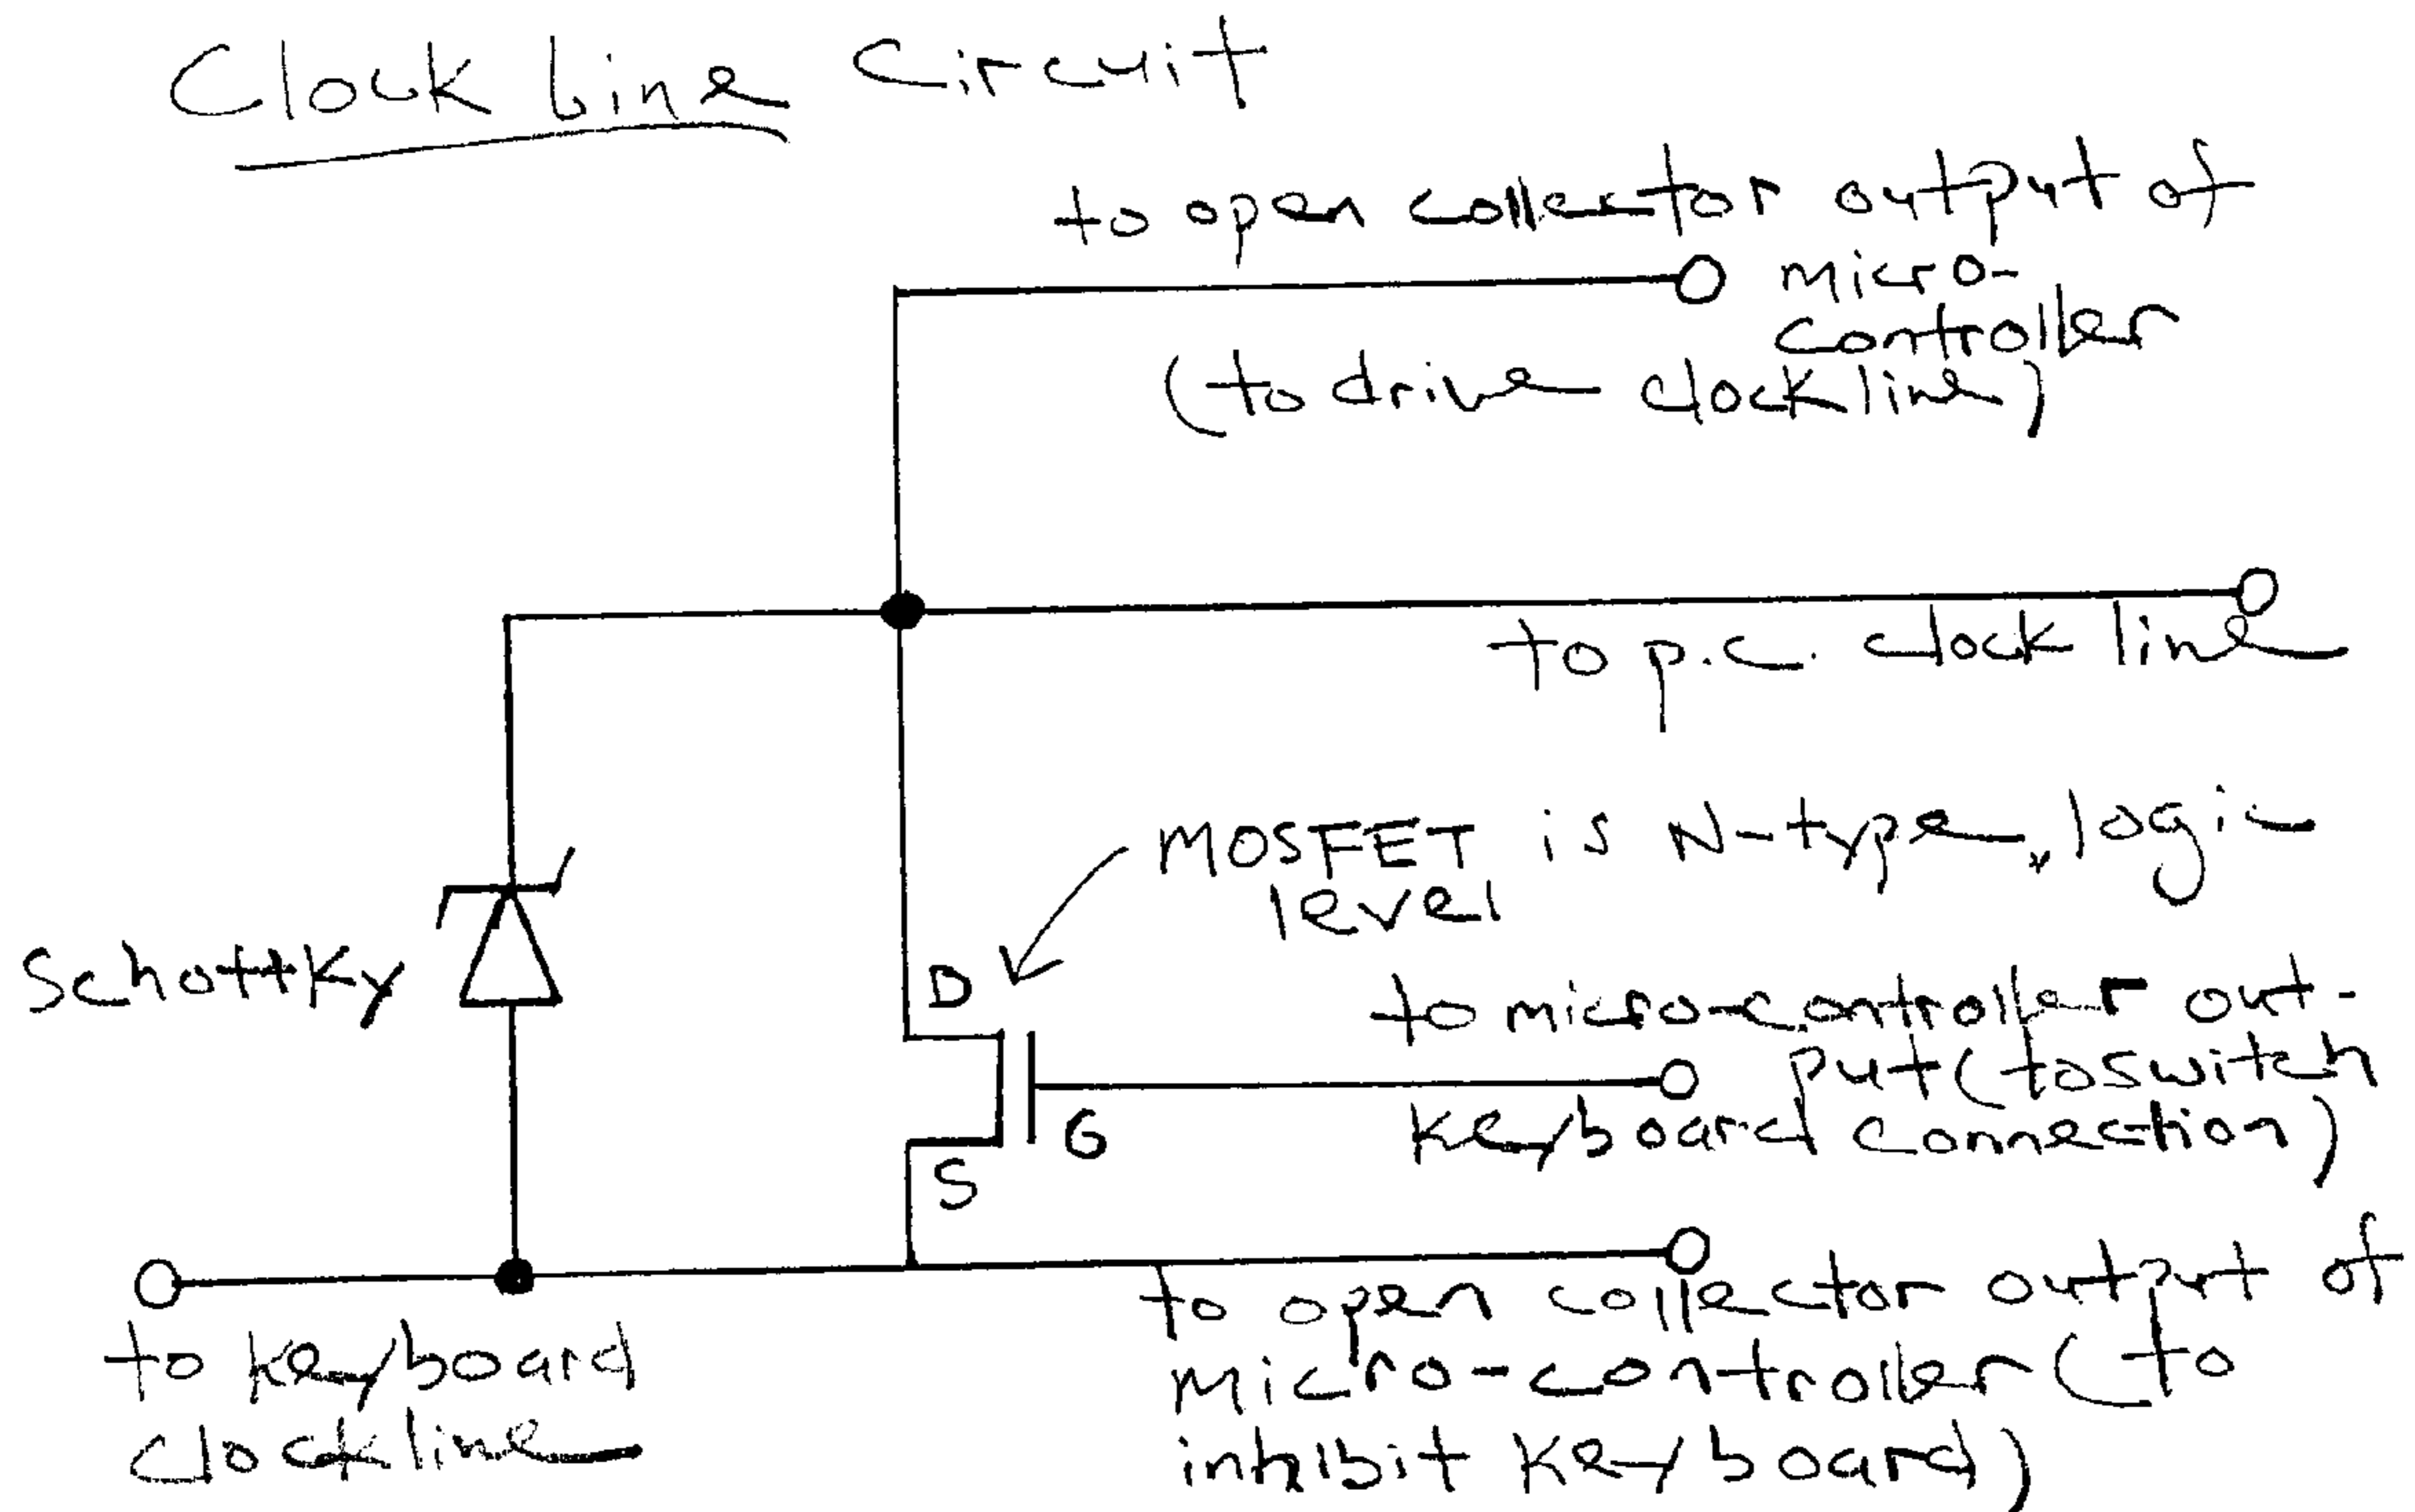 Clock Line Circuit
to open collector output of
micro-
controller
(to drive clock line)
to p.c. clock line
MOSFET is N-type, logic
level
Schottky
D
to micro-controller out-
put (to switch
G
keyboard connection)
S
to open collector output of
to keyboard
micro-controller (to
clock line
inhibit keyboard)